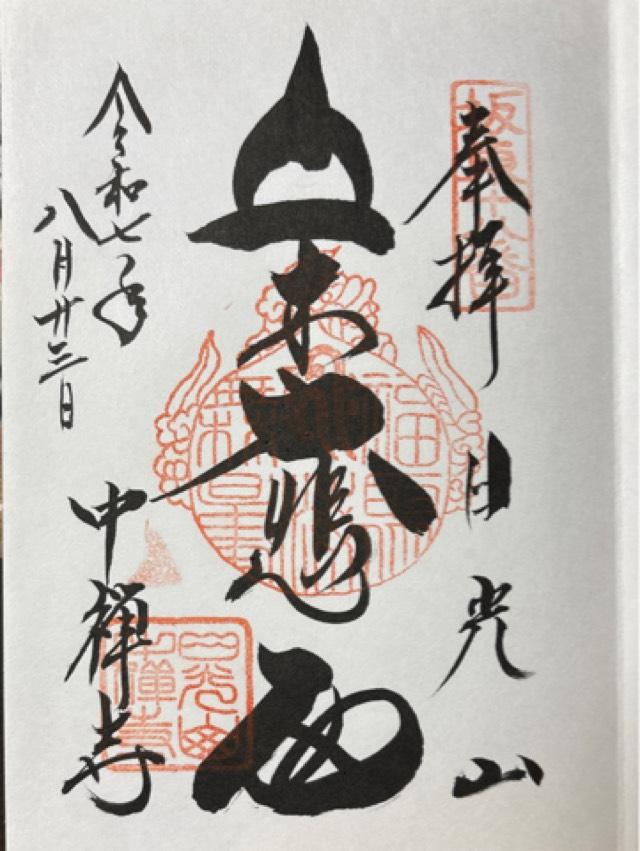 坂東十八番
奉拝
日光山
立木大悲
令和七年
八月廿三日
中禅寺
日光山
中禪寺